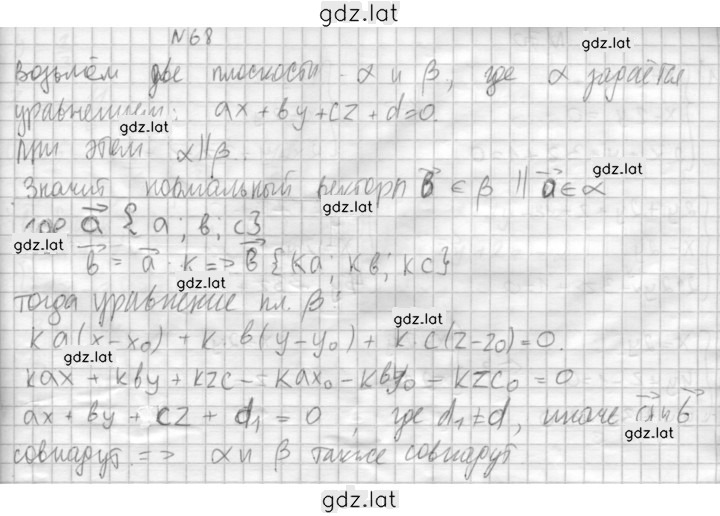 gdz.lat
№68
gdz.lat
Возьмём две плоскости - α и β, где α задаётся
уравнением: ax + by + cz + d = 0.
gdz.lat
при этом α || β.
gdz.lat
Значит нормальный вектор n b⃗ ∈ β || a⃗ ∈ α
gdz.lat
где a⃗ {a; b; c}
gdz.lat
b⃗ = a⃗ · k => b⃗ {ka; kb; kc}
gdz.lat
тогда уравнение пл. β:
gdz.lat
ka(x-x₀) + k·b(y-y₀) + k·c(z-z₀) = 0.
gdz.lat
kax + kby + kzc - kax₀ - kby₀ - kzc₀ = 0
ax + by + cz + d₁ = 0, где d₁ ≠ d, иначе a⃗ и b⃗
gdz.lat
совпадут => α и β также совпадут
gdz.lat